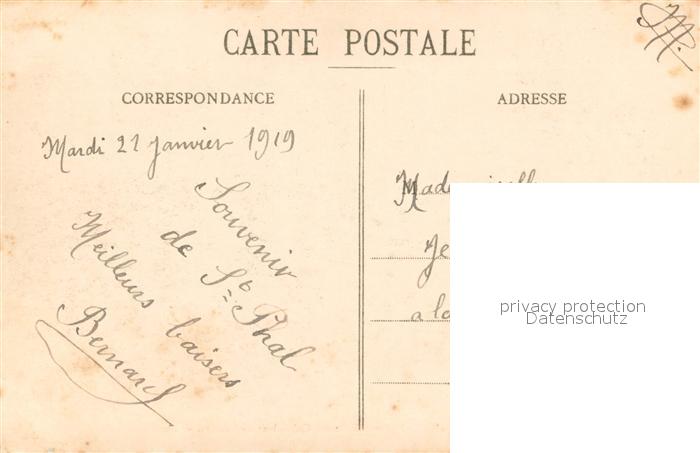 CARTE POSTALE
CORRESPONDANCE
ADRESSE
Mardi 21 Janvier 1919
Souvenir
de St Phal
Meilleurs baisers
Bernard
Je
a la
privacy protection
Datenschutz